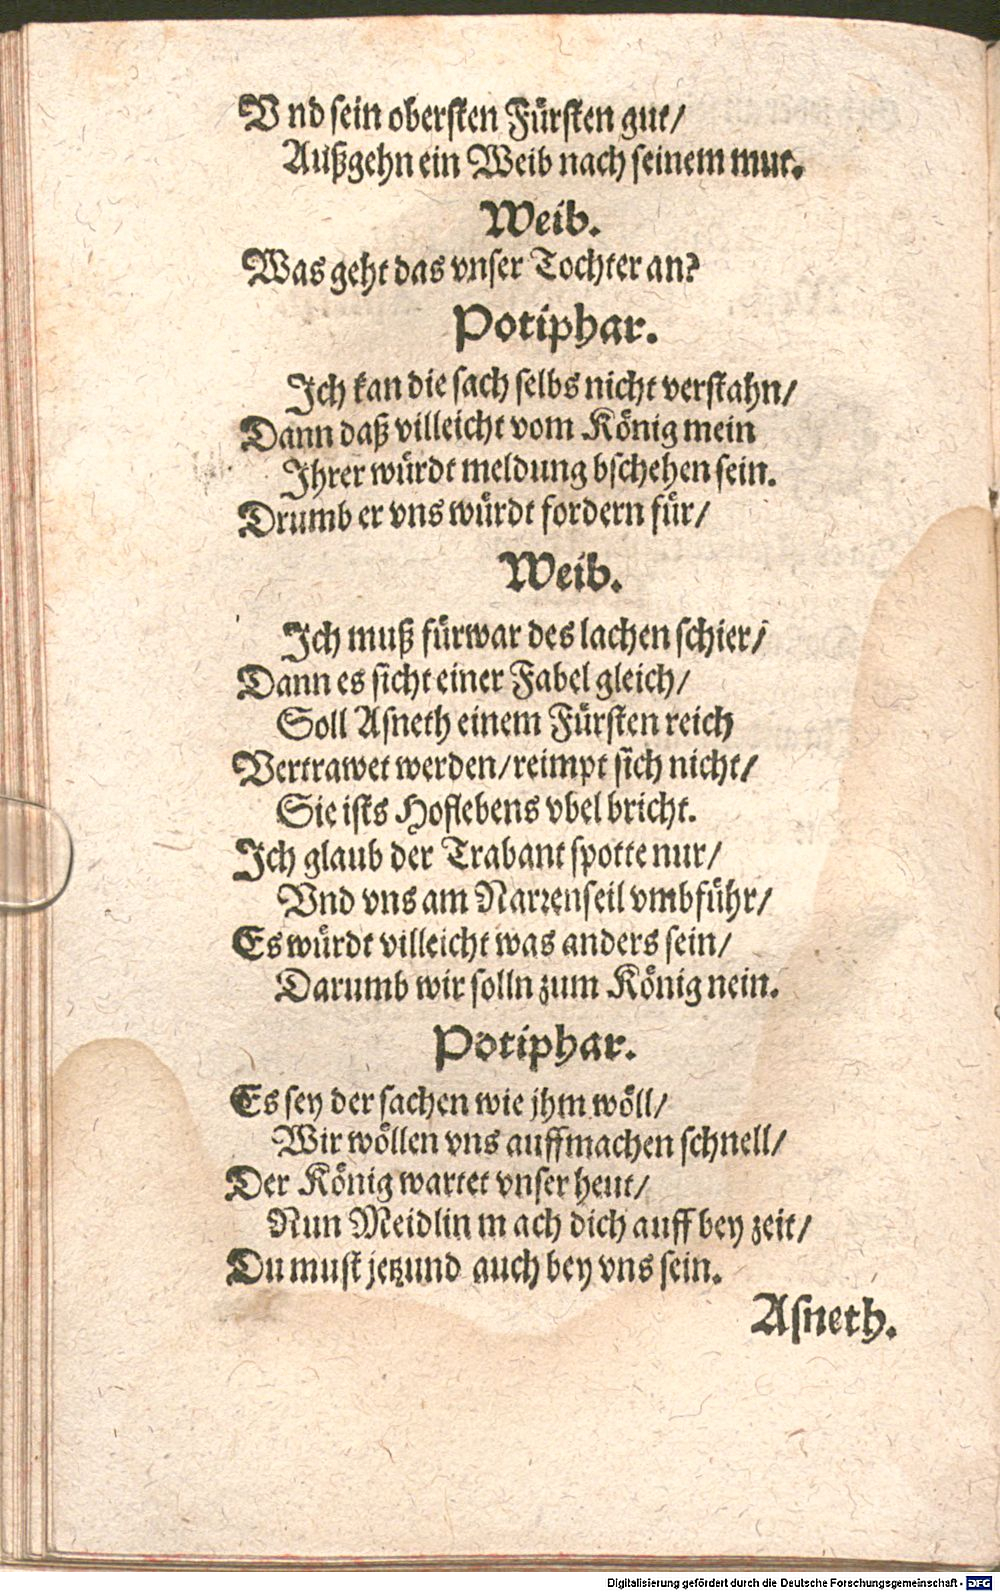 Vnd sein obersten Fürsten gut/
Außgehn ein Weib nach seinem mut.
Weib.
Was geht das vnser Tochter an?
Potiphar.
Ich kan die sach selbs nicht verstahn/
Dann daß villeicht vom König mein
Ihrer würdt meldung bschehen sein.
Drumb er vns würdt fordern für/
Weib.
Ich muß fürwar des lachen schier/
Dann es sicht einer Fabel gleich/
Soll Asneth einem Fürsten reich
Vertrawet werden/ reimpt sich nicht/
Sie ists Hoflebens vbel bricht.
Ich glaub der Trabant spotte nur/
Vnd vns am Narrenseil vmbführ/
Es würdt villeicht was anders sein/
Darumb wir solln zum König nein.
Potiphar.
Es sey der sachen wie jhm wöll/
Wir wöllen vns auffmachen schnell/
Der König wartet vnser heut/
Nun Meidlin mach dich auff bey zeit/
Du must jetzund auch bey vns sein.
Asneth.
Digitalisierung gefördert durch die Deutsche Forschungsgemeinschaft - DFG